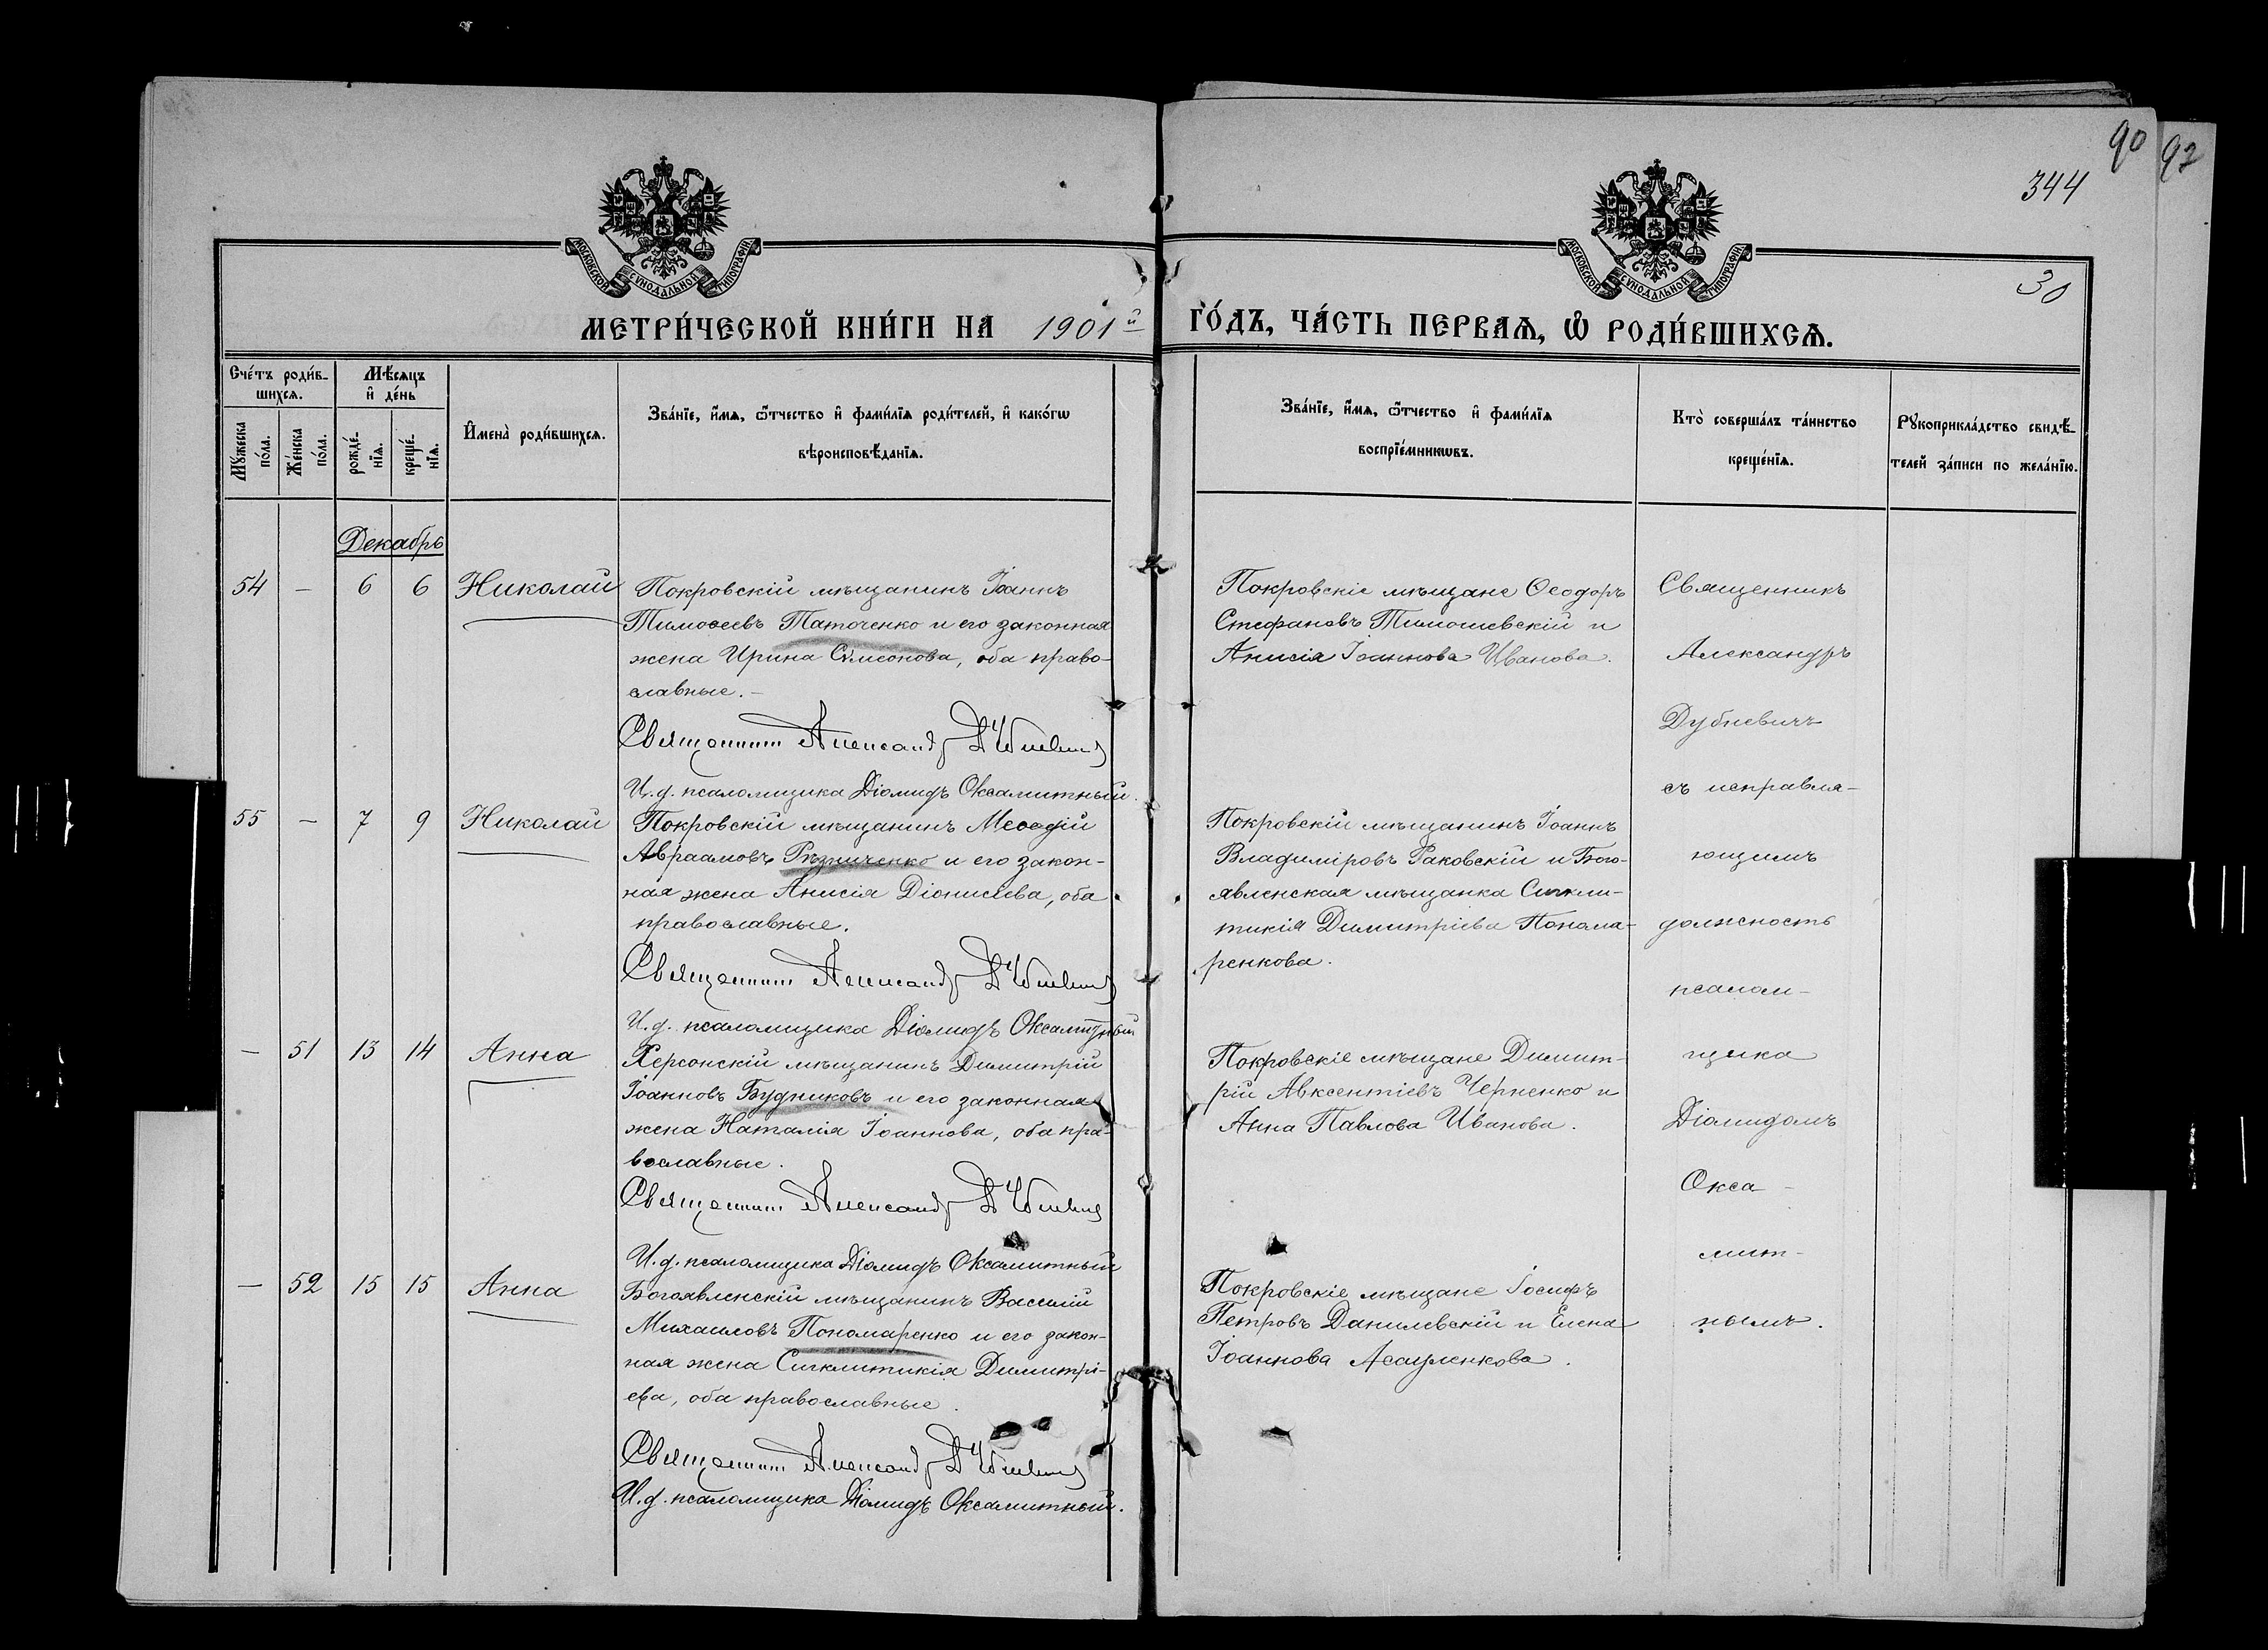 90 92
344
30
МОСКОВСКОЙ СѴНОДАЛЬНОЙ ТИПОГРАФІИ
МОСКОВСКОЙ СѴНОДАЛЬНОЙ ТИПОГРАФІИ
МЕТРИ́ЧЕСКОЙ КНИ́ГИ НА 1901й ГО́ДЪ, ЧА́СТЬ ПЕРВАѦ, Ѽ РОДИ́ВШИХСѦ.
Сче́тъ роди́в-
шихсѧ.
Мꙋ́жеска по́ла.
Же́нска по́ла.
Мѣ́сѧцъ
и҆ де́нь
рожде́-нїѧ.
креще́-нїѧ.
И҆мена̀ роди́вшихсѧ.
Зва́нїе, и҆́мѧ, ѻ҆́тчество и҆ фами́лїѧ роди́телей, и҆ како́гѡ
вѣроисповѣ́данїѧ.
Зва́нїе, и҆́мѧ, ѻ҆́тчество и҆ фами́лїѧ
воспрїе́мникѡвъ.
Кто̀ соверша́лъ та́инство
креще́нїѧ.
Рꙋкоприкла́дство свидѣ́-
телей за́писи по жела́нїю.
Декабрь
54 — 6 6 Николай
Покровскій мѣщанинъ Іоаннъ
Тимоѳеевъ Таточенко и его законная
жена Ирина Сѵмеонова, оба право-
славные.—
Священникъ Александръ Дубневичъ
И.д. псаломщика Діомидъ Оксамитный.
Покровскіе мѣщане Ѳеодоръ
Стефановъ Тимошевскій и
Анисія Іоаннова Иванова.
55 — 7 9 Николай
Покровскій мѣщанинъ Меѳодій
Авраамовъ Рѣзниченко и его закон-
ная жена Анисія Діонисіева, оба
православные.
Священникъ Александръ Дубневичъ
И.д. псаломщика Діомидъ Оксамитный
Покровскій мѣщанинъ Іоаннъ
Владиміровъ Раковскій и Бого-
явленская мѣщанка Сигкли-
тикія Димитріева Понома-
ренкова.
— 51 13 14 Анна
Херсонскій мѣщанинъ Димитрій
Іоанновъ Будниковъ и его законная
жена Наталія Іоаннова, оба пра-
вославные.
Священникъ Александръ Дубневичъ
И.д. псаломщика Діомидъ Оксамитный
Покровскіе мѣщане Димит-
рій Авксентіевъ Черненко и
Анна Павлова Иванова.
— 52 15 15 Анна
Богоявленскій мѣщанинъ Василій
Михаиловъ Пономаренко и его закон-
ная жена Сигклитикія Димитрі-
ева, оба православные.
Священникъ Александръ Дубневичъ
И.д. псаломщика Діомидъ Оксамитный.
Покровскіе мѣщане Іосифъ
Петровъ Данилевскій и Елена
Іоаннова Асауленкова.
Священникъ
Александръ
Дубневичъ
съ исправля-
ющимъ
должность
псалом-
щика
Діомидомъ
Окса-
мит-
нымъ.